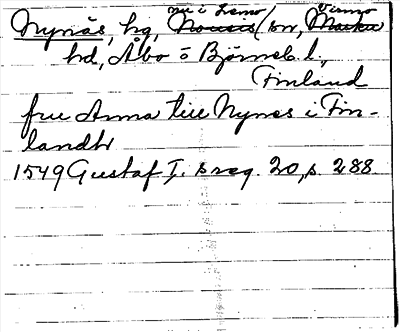 nu i Lemo Virmo
Nynäs, hg, Nousis / sn, Masku
hd, Åbo o Björneb. l.,
Finland
fru Anna till Nynes i Fin-
landh
1549 Gustaf I. s reg. 20, s. 288